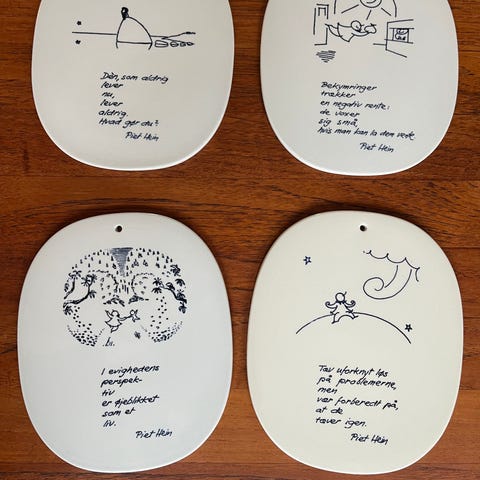 Dén, som aldrig
lever
nu,
lever
aldrig.
Hvad gør du?
Piet Hein
Bekymringer
trækker
en negativ rente:
de vokser
sig små,
hvis man kan la dem vente
Piet Hein
I evighedens
perspek-
tiv
er øjeblikket
som et
liv.
Piet Hein
Tav uforknyt løs
på problemerne,
men
vær forberedt på,
at de
tæver igen.
Piet Hein